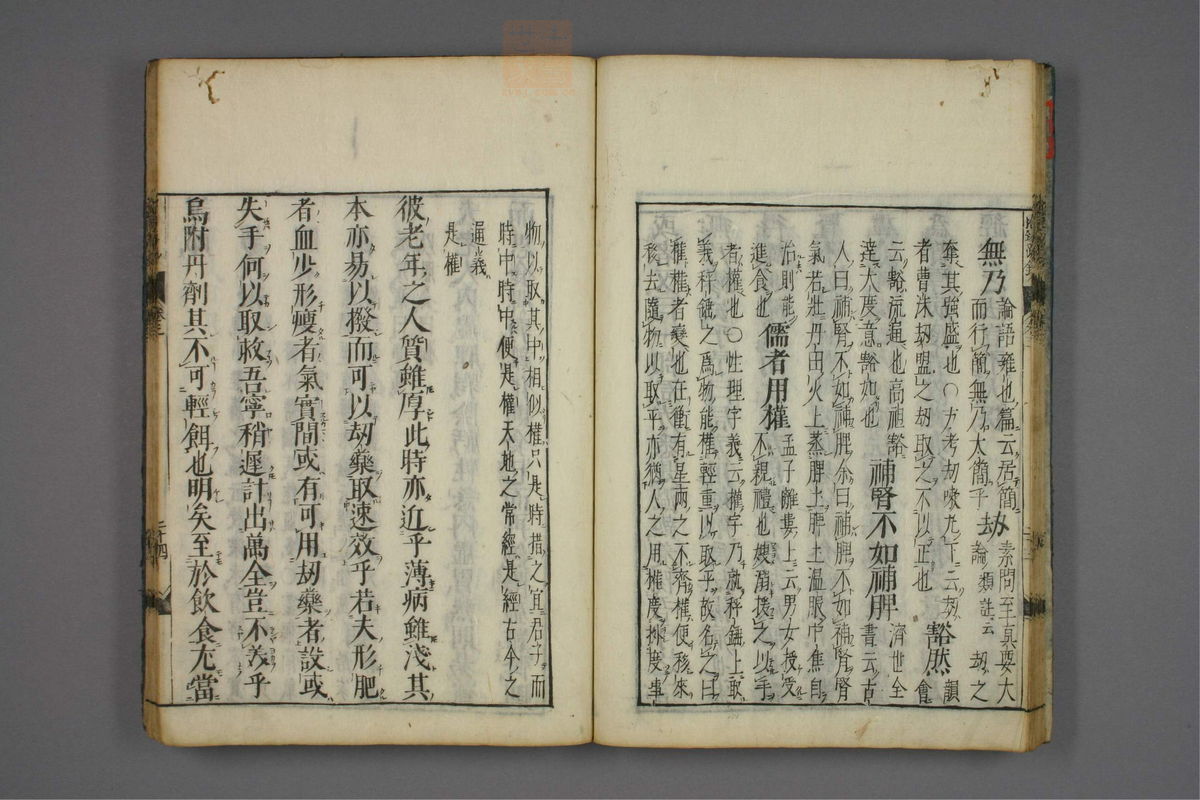 無乃 論語雍也篇云居簡
而行簡無乃大簡乎 劫 素問至真要大
論類註云劫之
奪其強盛也○方考劫嗽丸下云劫
者曹沫劫盟之劫取之不以正也 豁然 韻
會
云豁流通也高祖豁
達大度意豁如也 補腎不如補脾 濟世全
書云古
人曰補腎不如補脾余曰補脾不如補腎腎
氣若壯丹田火上蒸脾土脾土溫脹中焦自
治則能
進食也 儒者用權 孟子離婁上云男女授受
不親禮也嫂溺援之以手
者權也○性理字義云權字乃就秤錘上取
義秤錘之爲物能權輕重以取平故名之曰
權權者變也在衡有星兩之不齊權便移來
移去隨物以取平亦猶人之用權度揆度事
物以取其中相似權只是時措之宜君子而
時中時中便是權天地之常經是經古今之
通義
是權
彼老年之人質雖厚此時亦近乎薄病雖淺其
本亦易以撥而可以劫藥取速效乎若夫形肥
者血少形瘦者氣實間或有可用劫藥者設或
失手何以取救吾寧稍遲計出萬全豈不義乎
烏附丹劑其不可輕餌也明矣至於飲食尤當
二十四